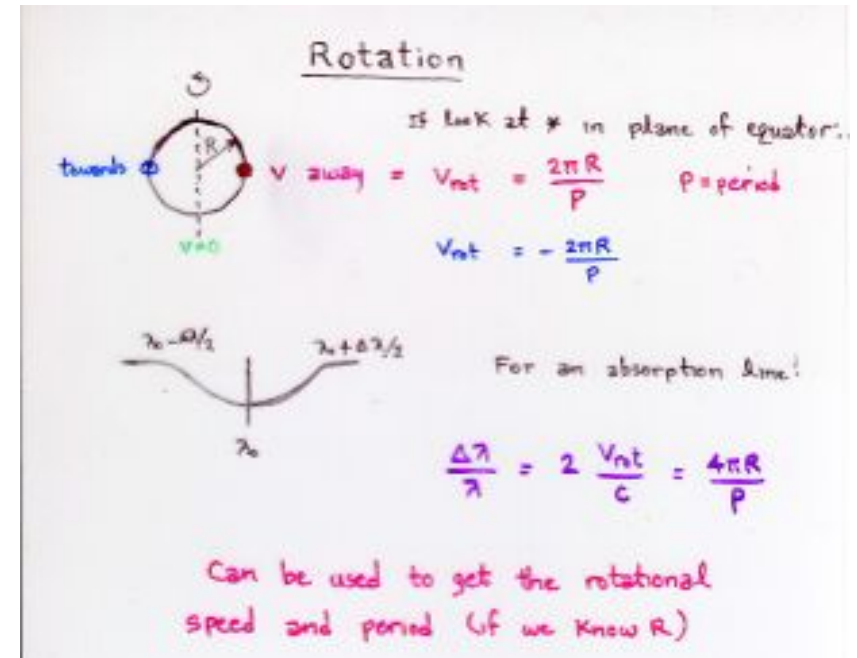 Rotation
If look at * in plane of equator..
R
towards
V away = Vrot = 2πR/P P = period
V=0
Vrot = - 2πR/P
λ₀ - Δλ/2
λ₀ + Δλ/2
For an absorption line:
λ₀
Δλ/λ = 2 Vrot/c = 4πR/P
Can be used to get the rotational
speed and period (if we know R)